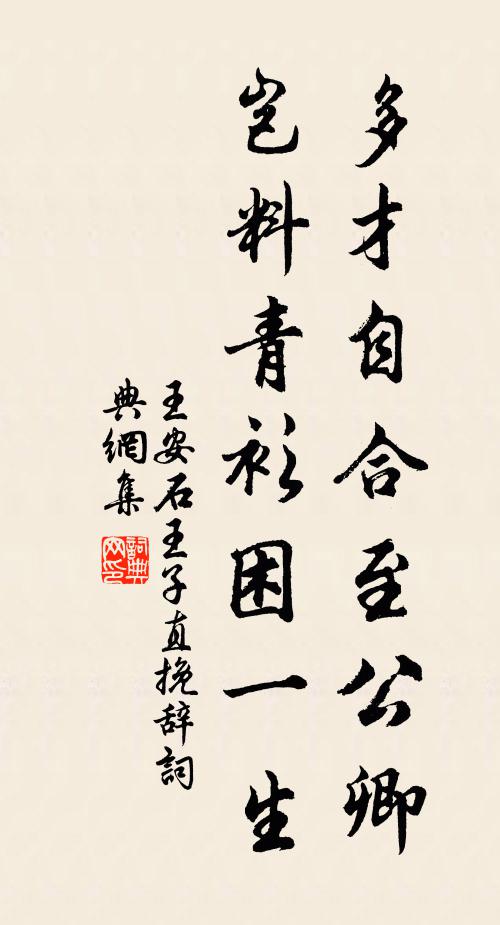 多才自合至公卿
岂料青衫困一生
王安石王子直挽辞詞
典網集
詞典网印